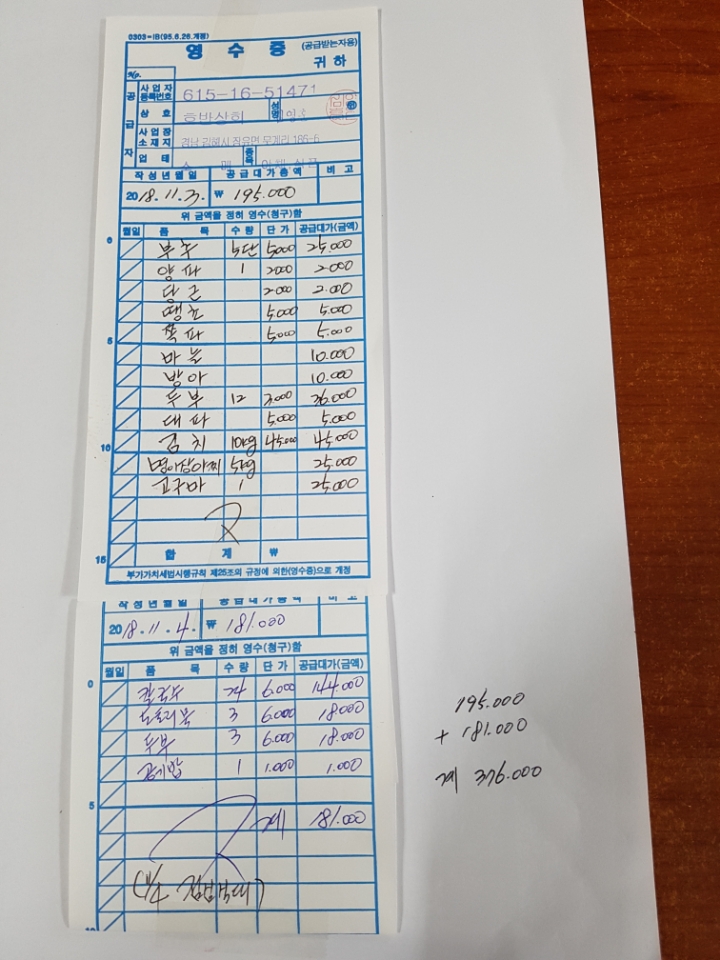 0303-IB(95.6.26.개정)
영 수 증 (공급받는자용)
귀 하
No.
공급자
사업자등록번호 615-16-51471
상 호 호반상회 성명
사업장소재지 경남 김해시 장유면 무계리 186-6
업 태 소 매 종목 야채, 식품
작성년월일 공급대가총액 비 고
2018.11.3. ₩ 195.000
위 금액을 정히 영수(청구)함
월일 품 목 수량 단 가 공급대가(금액)
부추 5단 5000 25.000
양파 1 2000 2.000
당근 2000 2.000
5.000 5.000
쪽파 5.000 5.000
마늘 10.000
방아 10.000
두부 12 36.000
대파 5.000 5.000
김치 10kg 45.000 45.000
명이장아찌 5kg 25.000
고구마 1 25.000
합 계 ₩
부가가치세법시행규칙 제25조의 규정에 의한(영수증)으로 개정
작성년월일 공급대가총액 비 고
2018.11.4. ₩ 181.000
위 금액을 정히 영수(청구)함
월일 품 목 수 량 단 가 공급대가(금액)
24 6.000 144.000
도토리묵 3 6.000 18.000
두부 3 6.000 18.000
1 1.000 1.000
계 181.000
195.000
+ 181.000
계 376.000